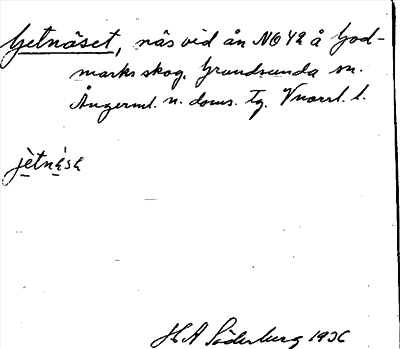 Getnäset, näs vid ån NO 42 å God-
marks skog. Grundsunda sn.
Ångerml. n. doms. tg. Vnorrl. l.
jètnèsə
H A Söderberg 1936